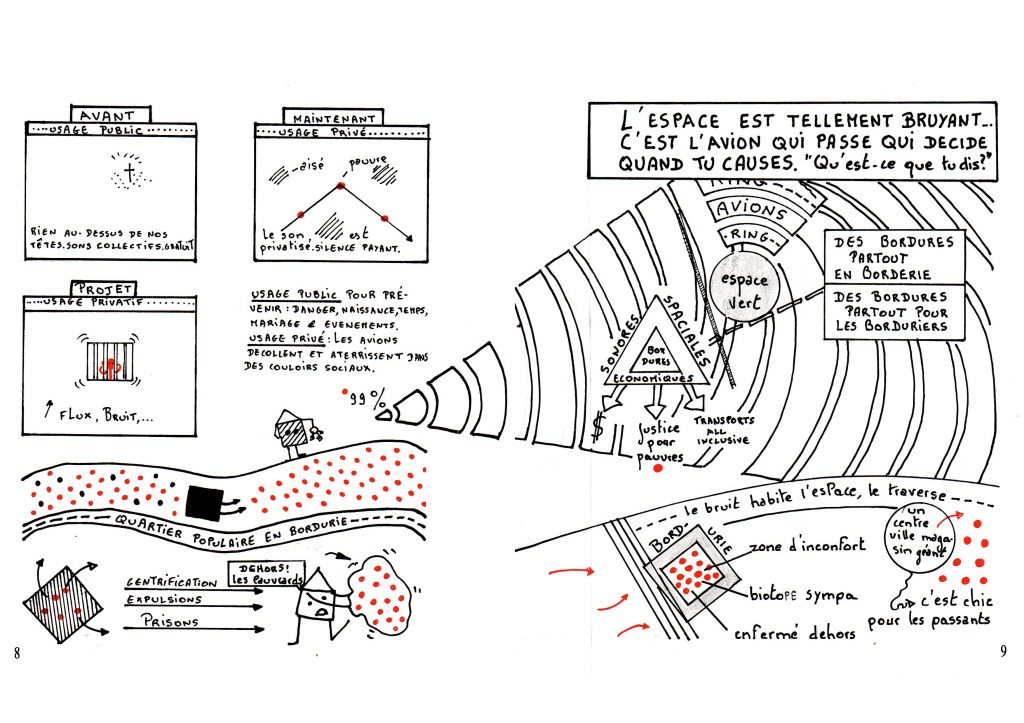 AVANT
USAGE PUBLIC
RIEN AU-DESSUS DE NOS
TÊTES.SONS COLLECTIFS.GRATUIT
MAINTENANT
USAGE PRIVÉ
aisé
pauvre
Le son, est
privatisé.SILENCE PAYANT.
PROJET
USAGE PRIVATIF
FLUX, BRUIT,...
USAGE PUBLIC POUR PRÉ-
VENIR : DANGER, NAISSANCE, TEMPS,
MARIAGE & ÉVENEMENTS.
USAGE PRIVÉ : LES AVIONS
DECOLLENT ET ATERRISSENT DANS
DES COULOIRS SOCIAUX.
99 %
QUARTIER POPULAIRE EN BORDURIE
GENTRIFICATION
EXPULSIONS
PRISONS
DEHORS!
les Pauvards
8
L'ESPACE EST TELLEMENT BRUYANT...
C'EST L'AVION QUI PASSE QUI DECIDE
QUAND TU CAUSES. "Qu'est-ce que tu dis?"
RING
AVIONS
RING
espace
vert
DES BORDURES
PARTOUT
EN BORDERIE
DES BORDURES
PARTOUT POUR
LES BORDURIERS
SONORES
SPACIALES
BOR
DURES
ECONOMIQUES
$
Justice
pour
pauvres
TRANSPORTS
ALL
INCLUSIVE
le bruit habite l'esPace, le traverse
BORD'URIE
zone d'inconfort
biotope sympa
enfermé dehors
un
centre
ville maga-
sin géant
c'est chic
pour les passants
9